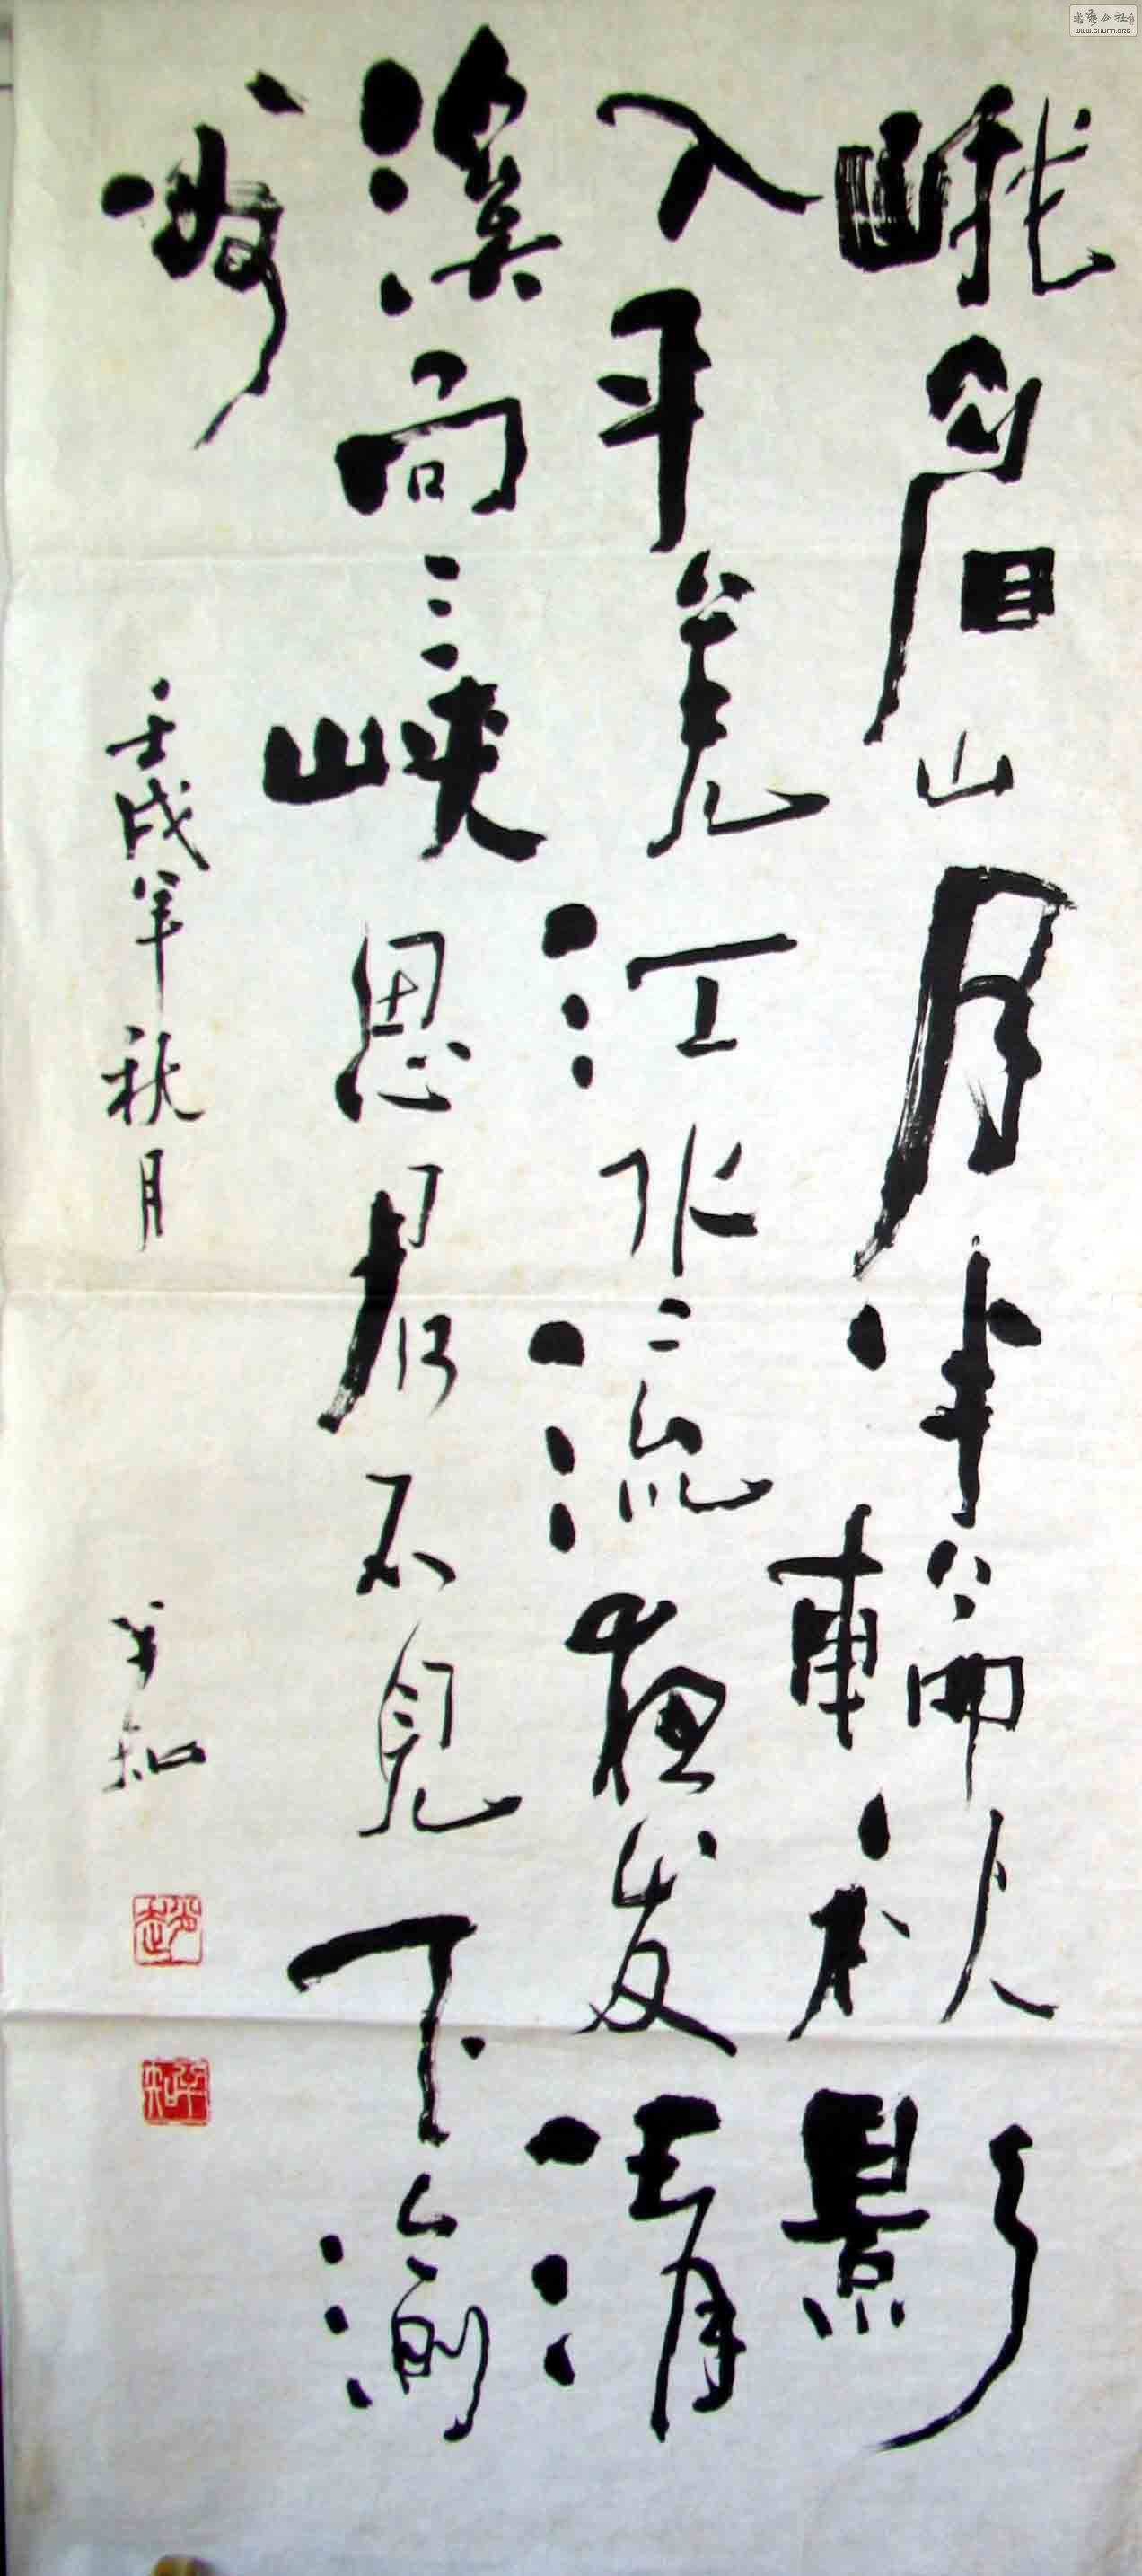 峨眉山月半轮秋影
入平羌江水流夜发清
溪向三峡思君不见下渝
州
壬戌年秋月
书艺公社
WWW.SHUFA.ORG